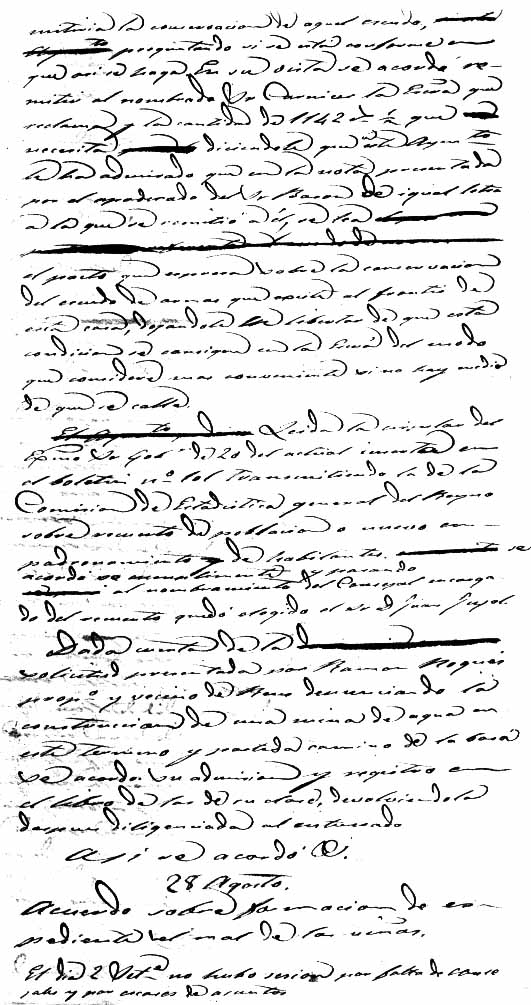 la conservacion de aquel escudo,
preguntando si se està conforme en
que asi se haga. En su vista se acordó re-
mitir al nombrado Sr Carnicer la Escra que
reclama y la cantidad de 1142 rs ½ que
necesita, diciendole que este Ayunto
le ha admirado que en la nota presentada
por el apoderado del Sr Baron de igual letra
a la que se remitió à él, se lea
el pacto que espresa sobre la conservacion
del escudo de armas que existe al frontis de
esta casa, dejandole en libertad de que esta
condicion se consigne en la Escra del modo
que considere mas conveniente si no hay medio
de que se calle.
Leida la circular del
Exmo Sr Gobr de 20 del actual inserta en
el boletin no 101 transmitiendo la de la
Comision de Estadistica general del Reyno
sobre recuento de poblacion o nuevo em-
padronamiento de habitantes. se
acordó y pasando
al nombramiento del Concejal encarga
do del recuento quedó elegido el Sr D Juan Pujol.
Dada cuenta de la
solicitud presentada por Ramon Nogués
propo y vecino de Reus denunciando la
construccion de una mina de agua en
este termino y partida camino de la
se acordó su admision y registro en
el libro de las de su clase, devolviendola
despues diligenciada al interesado
Asi se acordó
28 Agosto.
Acuerdo sobre formacion de es-
pediente del mal de las viñas.
El dia 2 Setre no hubo sesion por falta de conce
jales y por escasés de asuntos